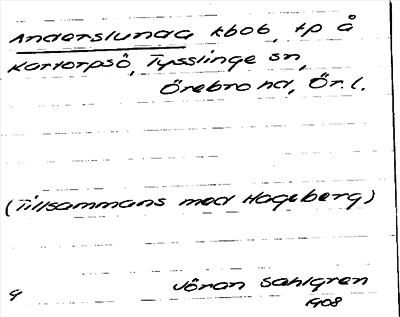 Anderslunda kbob, tp å
Kartorpsö, Tysslinge sn,
Örebro hd, Ör. l.
(Tillsammans med Hageberg)
Jöran Sahlgren
9 1908